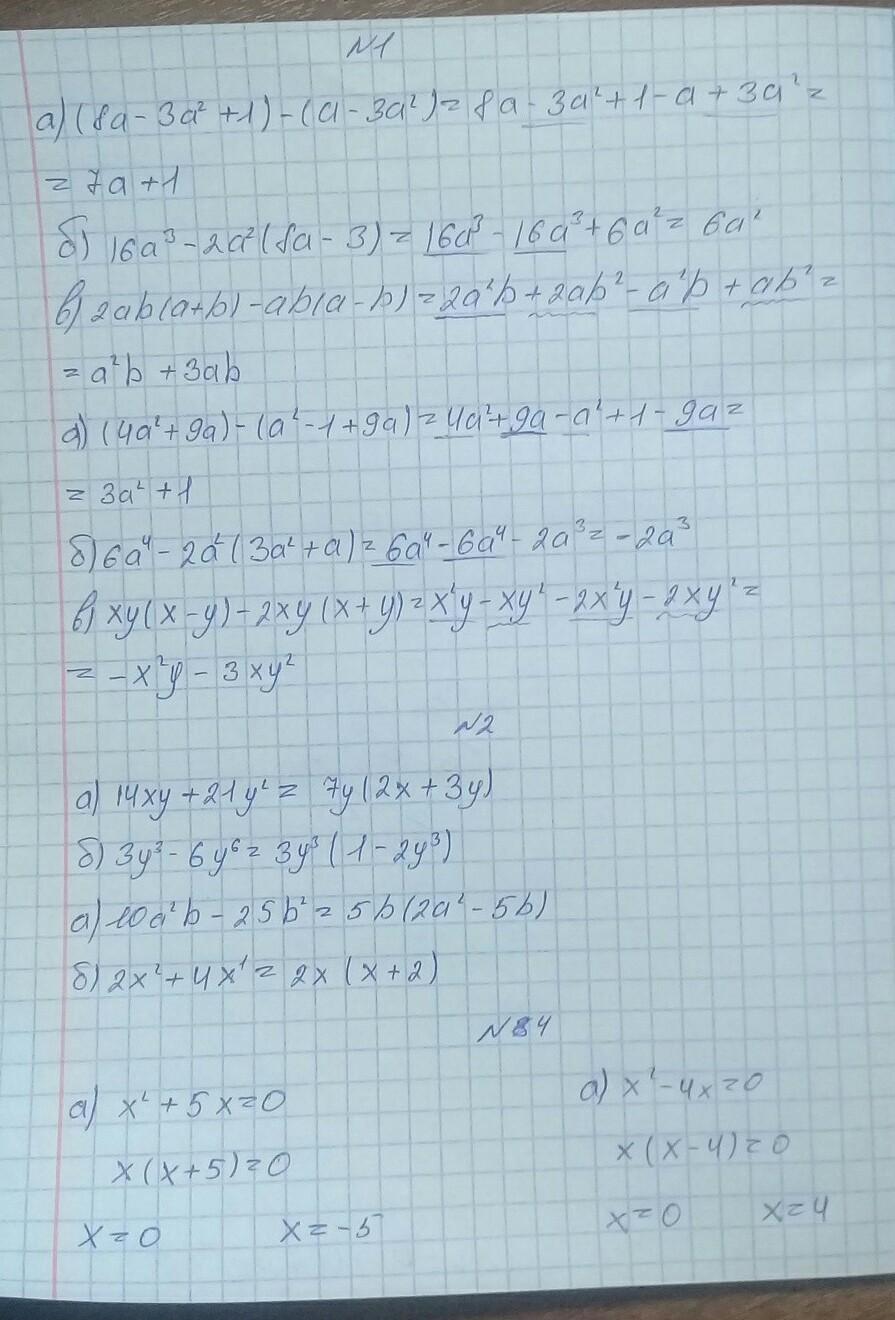 №1
а) (8a - 3a² + 1) - (a - 3a²) = 8a - 3a² + 1 - a + 3a² =
= 7a + 1
б) 16a³ - 2a²(8a - 3) = 16a³ - 16a³ + 6a² = 6a²
в) 2ab(a+b) - ab(a-b) = 2a²b + 2ab² - a²b + ab² =
= a²b + 3ab
а) (4a² + 9a) - (a² - 1 + 9a) = 4a² + 9a - a² + 1 - 9a =
= 3a² + 1
б) 6a⁴ - 2a²(3a² + a) = 6a⁴ - 6a⁴ - 2a³ = -2a³
в) xy(x-y) - 2xy(x+y) = x²y - xy² - 2x²y - 2xy² =
= -x²y - 3xy²
№2
а) 14xy + 21y² = 7y(2x + 3y)
б) 3y³ - 6y⁶ = 3y³(1 - 2y³)
а) 10a²b - 25b² = 5b(2a² - 5b)
б) 2x² + 4x¹ = 2x(x+2)
№84
а) x² + 5x = 0
x(x+5) = 0
x = 0 x = -5
а) x² - 4x = 0
x(x-4) = 0
x = 0 x = 4